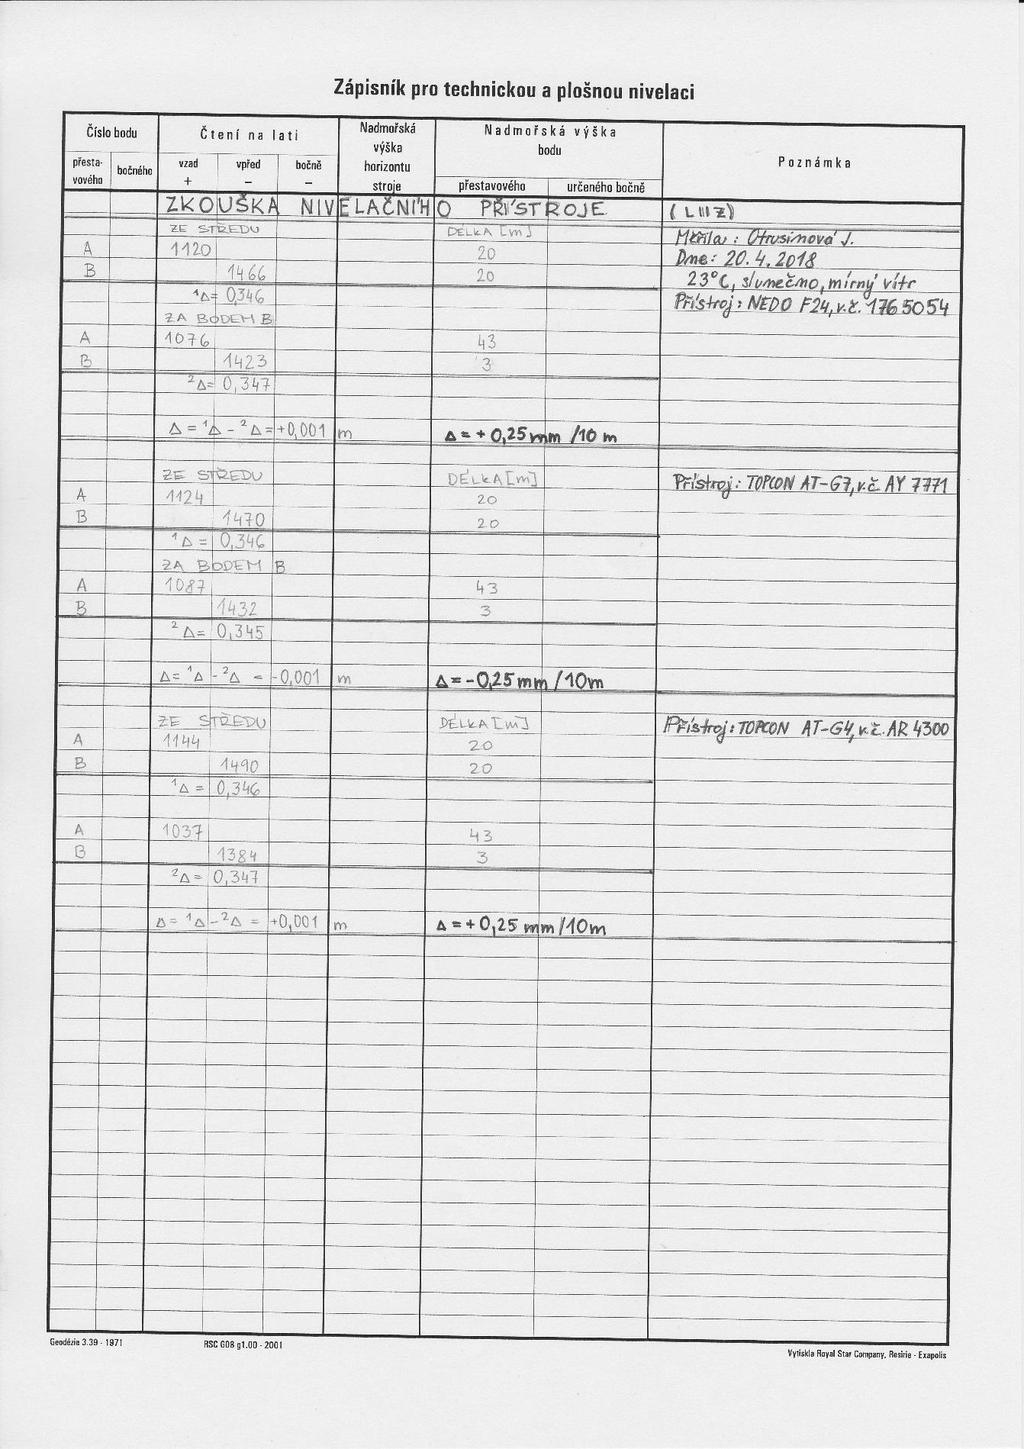 Zápisník pro technickou a plošnou nivelaci
Číslo bodu
přesta-
vového
bočného
Čtení na lati
vzad
+
vpřed
–
bočně
–
Nadmořská
výška
horizontu
stroje
Nadmořská výška
bodu
přestavového
určeného bočně
Poznámka
ZKOUŠKA NIVELAČNÍHO PŘÍSTROJE
ZE STŘEDU DÉLKA [m] Měřila: Otrusinová J.
A 1120 20 Dne: 20.4.2018
B 1466 20 23°C, slunečno, mírný vítr
¹Δ= 0,346 Přístroj: NEDO F24, v.č. 1765054
ZA BODEM B
A 1076 43
B 1423 3
²Δ= 0,347
Δ = ¹Δ - ²Δ = +0,001 m Δ = + 0,25 mm /10 m
ZE STŘEDU DÉLKA [m] Přístroj: TOPCON AT-G7, v.č. AY 7771
A 1124 20
B 1470 20
¹Δ = 0,346
ZA BODEM B
A 1087 43
B 1432 3
²Δ= 0,345
Δ= ¹Δ - ²Δ = -0,001 m Δ = -0,25 mm /10m
ZE STŘEDU DÉLKA [m] Přístroj: TOPCON AT-G4, v.č. AR 4300
A 1144 20
B 1490 20
¹Δ = 0,346
A 1037 43
B 1384 3
²Δ= 0,347
Δ= ¹Δ - ²Δ = +0,001 m Δ = + 0,25 mm /10m
Geodézie 3.39 - 1971
RSC G08 g1.00 - 2001
Vytiskla Royal Star Company, Resirie - Exapolis